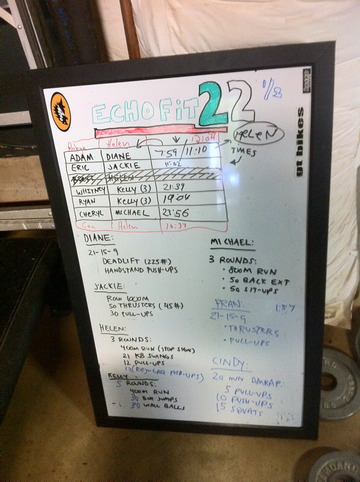 ECHO FiT 22
1/23
gt bikes
Brian Helen 12:04
HELEN
TIMES
ADAM DIANE 7:59 11:10
ERIC JACKIE
WHITNEY KELLY (3) 21:39
RYAN KELLY (3) 19:04
CHERYL MICHAEL 23:56
Helen
DIANE:
21-15-9
DEADLIFT (225#)
HANDSTAND PUSH-UPS
JACKIE:
ROW 1000M
50 THRUSTERS (45#)
30 PULL-UPS
HELEN:
3 ROUNDS:
400M RUN (STOP SIGN)
21 KB SWINGS
12 PULL-UPS
KELLY:
5 ROUNDS:
400M RUN
30 BOX JUMPS
30 WALL BALLS
MICHAEL:
3 ROUNDS:
• 800M RUN
• 50 BACK EXT
• 50 SIT-UPS
FRAN:
21-15-9
• THRUSTERS
• PULL-UPS
CINDY:
20 MIN AMRAP:
5 PULL-UPS
10 PUSH-UPS
15 SQUATS